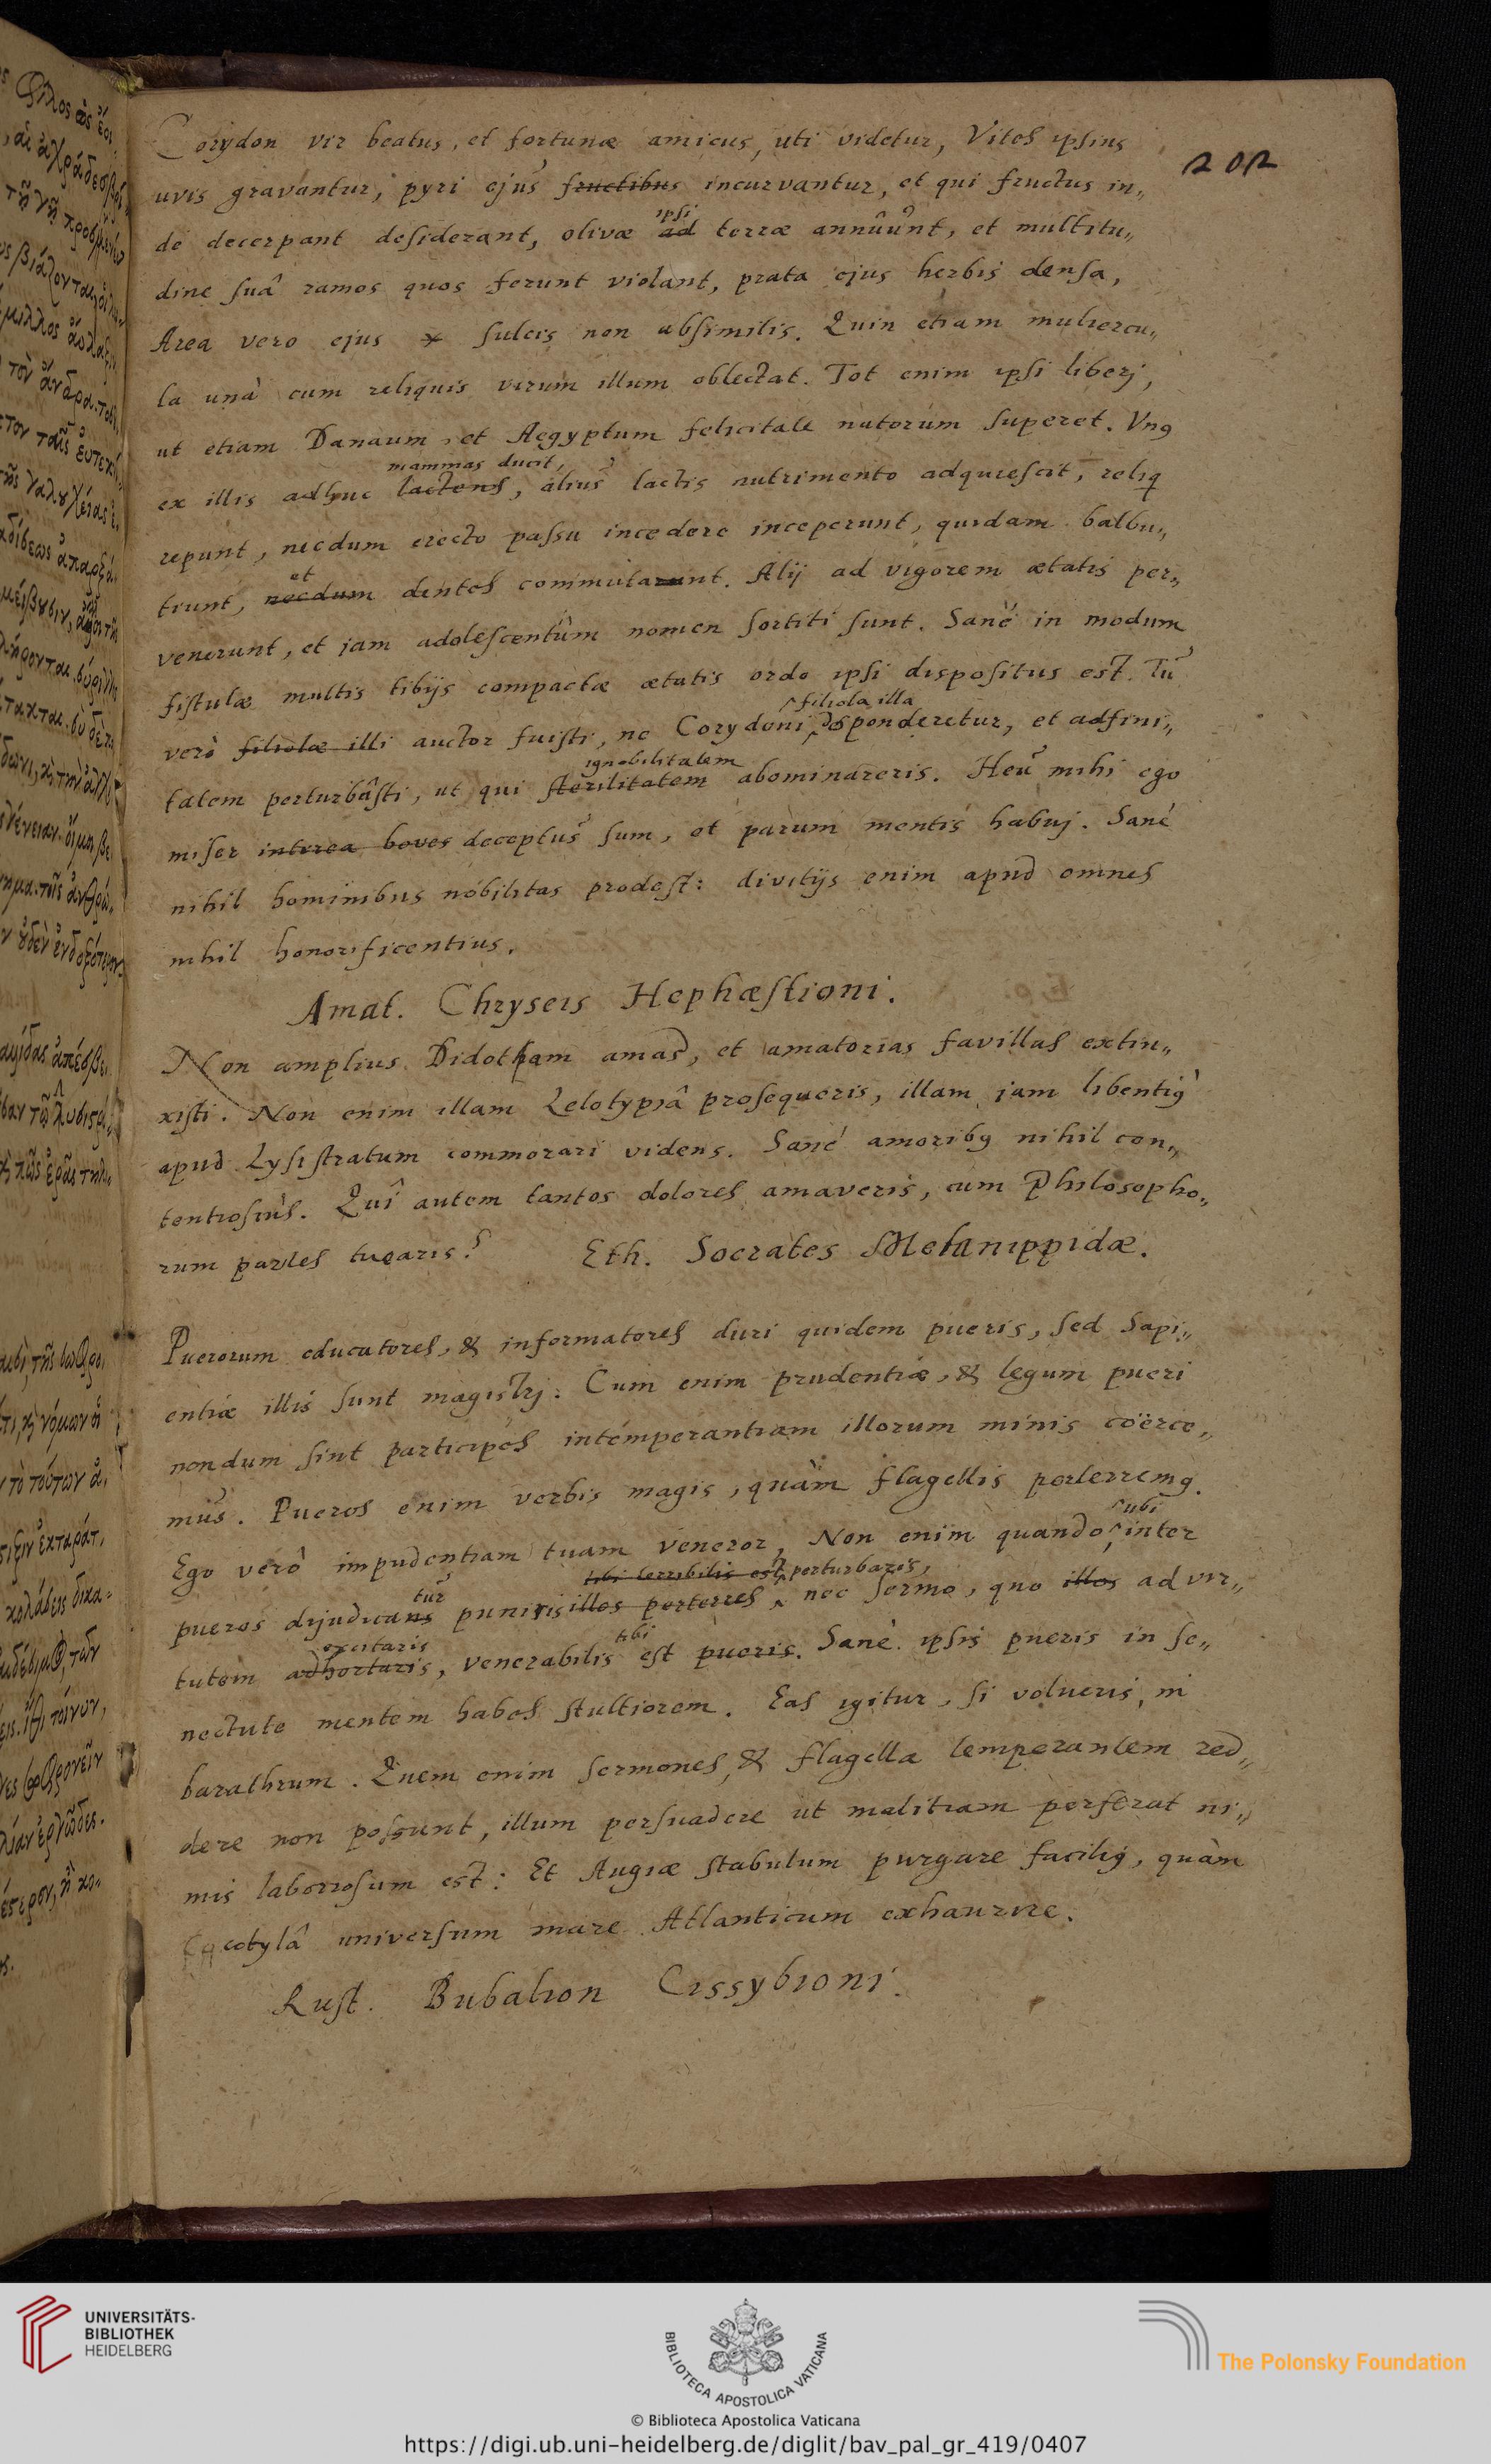 202
Corydon vir beatus, et fortunæ amicus, uti videtur, Vites ipsius
uvis gravantur, pyri ejus fructibus incurvantur, et qui fructus in„
de decerpant desiderant, olivæ ad ipsi terræ annûunt, et multitu„
dine suâ ramos quos ferunt violant, prata ejus herbis densa,
Area vero ejus sulcis non absimilis. Quin etiam muliercu„
la unà cum reliquis virum illum oblectat. Tot enim ipsi liberj,
ut etiam Danaum, et Aegyptum felicitate natorum superet. Vn9
mammas ducit,
ex illis adhuc lactens, alius lactis nutrimento adquiescit, reliq
repunt, necdum erecto passu incedere inceperunt, quidam balbu„
et
tiunt, necdum dentes commutarunt. Alij ad vigorem ætatis per„
venerunt, et jam adolescentûm nomen sortiti sunt. Sanè in modum
fistulæ multis tibijs compactæ ætatis ordo ipsi dispositus est. Tu
filiola illa
verò filiolæ illi auctor fuisti, ne Corydoni desponderetur, et adfini„
ignobilitatem
tatem perturbâsti, ut qui sterilitatem abominareris. Heu mihi ego
miser interea boves deceptus sum, et parum mentis habuj. Sanè
nihil hominibus nobilitas prodest: divitijs enim apud omnes
nihil honorificentius.
Amat. Chryseis Hephæstioni.
Non amplius Didotham amas, et amatorias favillas extin„
xisti. Non enim illam Zelotypiâ prosequeris, illam jam libenti9
apud Lysistratum commorari videns. Sanè amorib9 nihil con„
tentiosius. Quî autem tantos dolores amaveris, cum Philosopho„
rum partes tuearis?
Eth. Socrates Melanippidæ.
Puerorum educatores, & informatores duri quidem pueris, sed Sapi„
entiæ illis sunt magistrj: Cum enim prudentiæ, & legum pueri
nondum sint participes intemperantiam illorum minis coërce„
mus. Pueros enim verbis magis, quàm flagellis perterrem9.
ubi
Ego verò impudentiam tuam veneror, Non enim quando, inter
tur tibi terribilis est perturbaris,
pueros dijudicans puniris illos perterres nec sermo, quo illos ad vir„
excitaris tibi
tutem adhortaris, venerabilis est pueris. Sanè ipsis pueris in se„
nectute mentem habes stultiorem. Eas igitur, si volueris, in
barathrum. Quem enim sermones, & flagella temperantem red„
dere non possunt, illum persuadere ut malitiam perferat ni„
mis laboriosum est: Et Augiæ stabulum purgare facili9, quàm
cotylâ universum mare Atlanticum exhaurire.
Rust. Bubalion Cissybioni.
UNIVERSITÄTS-
BIBLIOTHEK
HEIDELBERG
BIBLIOTECA APOSTOLICA VATICANA
The Polonsky Foundation
© Biblioteca Apostolica Vaticana
https://digi.ub.uni-heidelberg.de/diglit/bav_pal_gr_419/0407